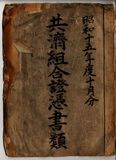 昭和十五年度十月分
共濟組合證憑書類